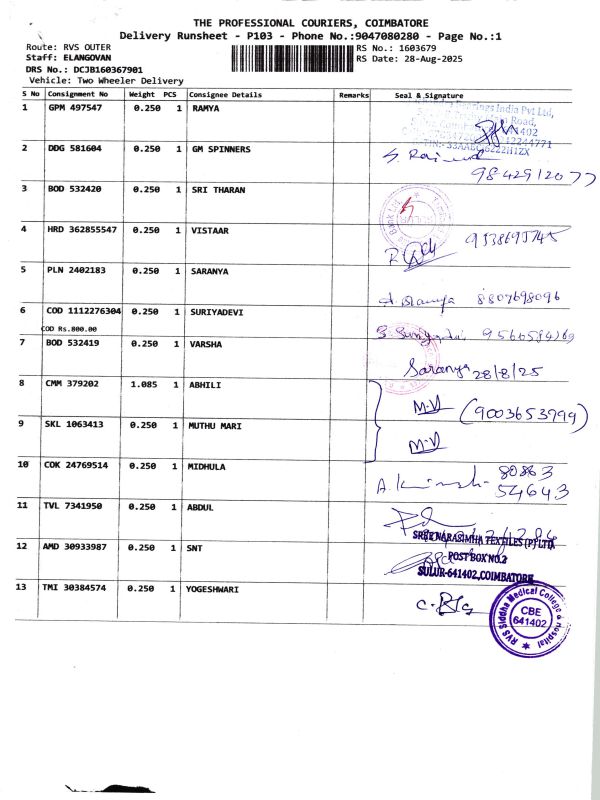 THE PROFESSIONAL COURIERS, COIMBATORE
Delivery Runsheet - P103 - Phone No.:9047080280 - Page No.:1
Route: RVS OUTER
RS No.: 1603679
Staff: ELANGOVAN
RS Date: 28-Aug-2025
DRS No.: DCJB160367901
Vehicle: Two Wheeler Delivery
S No Consignment No Weight PCS Consignee Details Remarks Seal & Signature
1 GPM 497547 0.250 1 RAMYA
2 DDG 581604 0.250 1 GM SPINNERS
9842912077
3 BOD 532420 0.250 1 SRI THARAN
4 HRD 362855547 0.250 1 VISTAAR
5 PLN 2402183 0.250 1 SARANYA
8807698096
6 COD 1112276304 0.250 1 SURIYADEVI
COD Rs.800.00
7 BOD 532419 0.250 1 VARSHA
Saranya 28/8/25
8 CMM 379202 1.085 1 ABHILI
M-V (9003653999)
9 SKL 1063413 0.250 1 MUTHU MARI
M-V
10 COK 24769514 0.250 1 MIDHULA
80863
54643
11 TVL 7341950 0.250 1 ABDUL
SREE NARASIMHA TEXTILES (P) LTD
12 AMD 30933987 0.250 1 SNT
POST BOX NO.2
SULUR-641402, COIMBATORE
13 TMI 30384574 0.250 1 YOGESHWARI
RVS Siddha Medical College & Hospital
CBE
641402